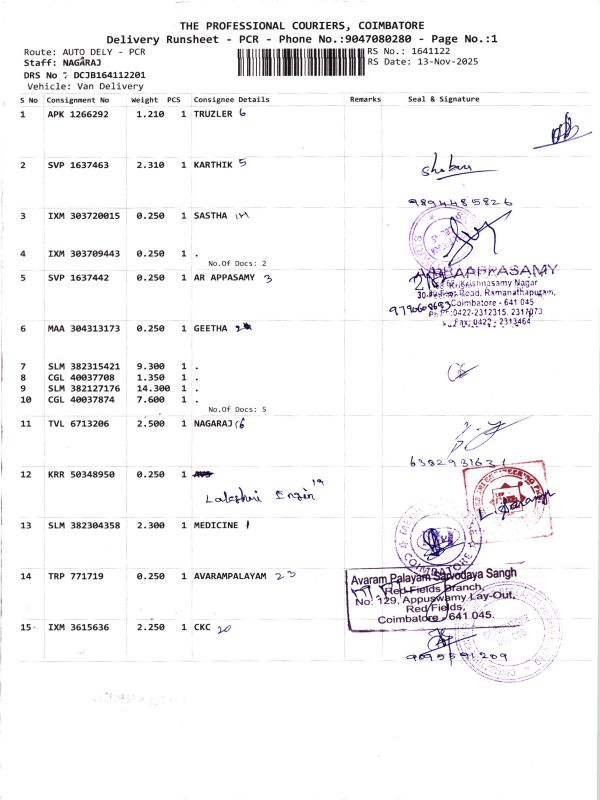 THE PROFESSIONAL COURIERS, COIMBATORE
Delivery Runsheet - PCR - Phone No.:9047080280 - Page No.:1
Route: AUTO DELY - PCR
RS No.: 1641122
Staff: NAGARAJ
RS Date: 13-Nov-2025
DRS No : DCJB164112201
Vehicle: Van Delivery
S No Consignment No Weight PCS Consignee Details Remarks Seal & Signature
1 APK 1266292 1.210 1 TRUZLER 6
2 SVP 1637463 2.310 1 KARTHIK 5
9894485826
3 IXM 303720015 0.250 1 SASTHA
4 IXM 303709443 0.250 1 .
No.Of Docs: 2
5 SVP 1637442 0.250 1 AR APPASAMY 3
APPASAMY
Krishnasamy Nagar
Road, Ramanathapuram,
Coimbatore - 641 045
0422-2312315, 2317073
Fax: 0422 - 2313464
6 MAA 304313173 0.250 1 GEETHA
7 SLM 382315421 9.300 1 .
8 CGL 40037708 1.350 1 .
9 SLM 382127176 14.300 1 .
10 CGL 40037874 7.600 1 .
No.Of Docs: 5
11 TVL 6713206 2.500 1 NAGARAJ
6382931631
12 KRR 50348950 0.250 1
Lakshmi Engin 19
13 SLM 382304358 2.300 1 MEDICINE 1
COIMBATORE
14 TRP 771719 0.250 1 AVARAMPALAYAM 23
Avaram Palayam Sarvodaya Sangh
Red Fields Branch,
No: 129, Appuswamy Lay-Out,
Red Fields,
Coimbatore - 641 045.
15 IXM 3615636 2.250 1 CKC 20
9095591209